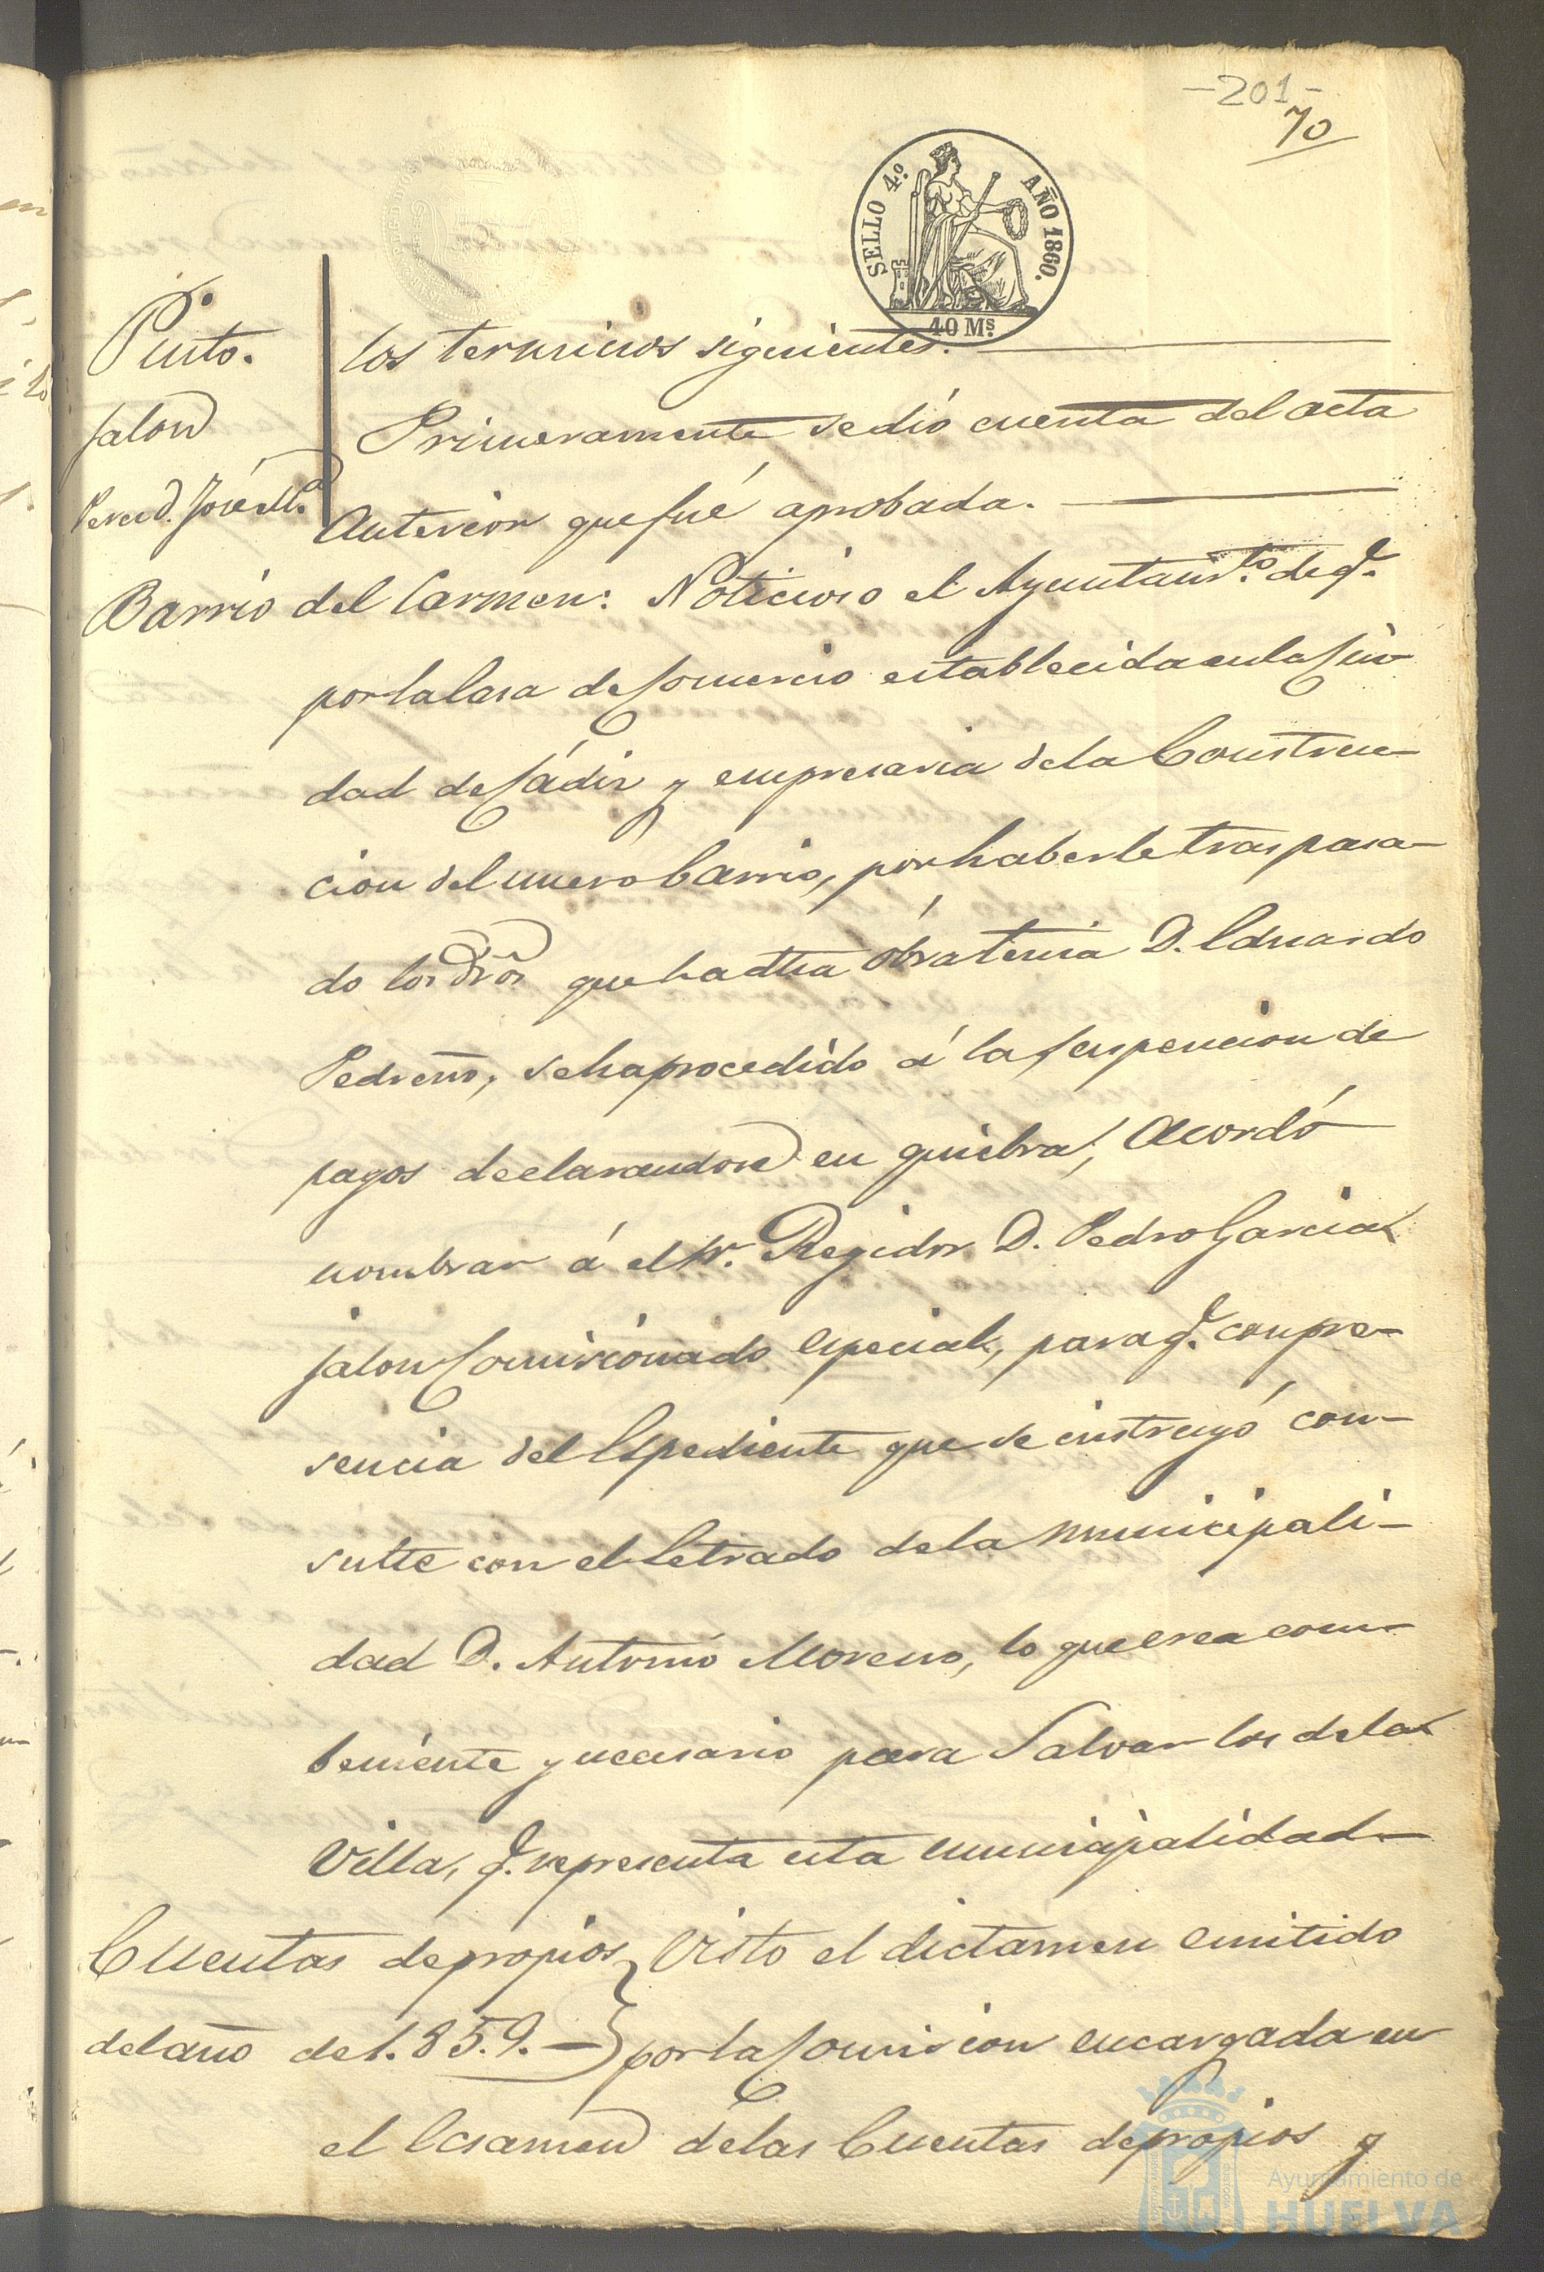 -201-
70
SELLO 4º. AÑO 1860.
40 Ms.
Pinto.
Jalon
Perez D. José Mª
los terminos siguientes.
Primeramente se dió cuenta del acta
Anterior que fué aprobada.
Barrio del Carmen: Noticioso el Ayuntamto. de q.
por la Casa de Comercio establecida en la Ciu-
dad de Cádiz y empresaria de la Construc-
cion del nuevo barrio, por haberle traspasa-
do los dros que ha dha óbra tenia D. Eduardo
Pedreño, se ha procedido á la suspencion de
pagos declarandose en quiebra, Acordó
nombrar á el Sr. Regidor D. Pedro Garcia
Jalon Comisionado especial, para q. con pre-
sencia del Espediente que se instruyó con-
sulte con el letrado de la municipali-
dad D. Antonio Moreno, lo que crea com-
beniente y necesario para Salvar los de la
Villa, q. representa esta municipalidad
Cuentas de propios Visto el dictamen emitido
del año de 1.859. por la Comision encargada en
el Esamen de las Cuentas de propios y
Ayuntamiento de
HUELVA